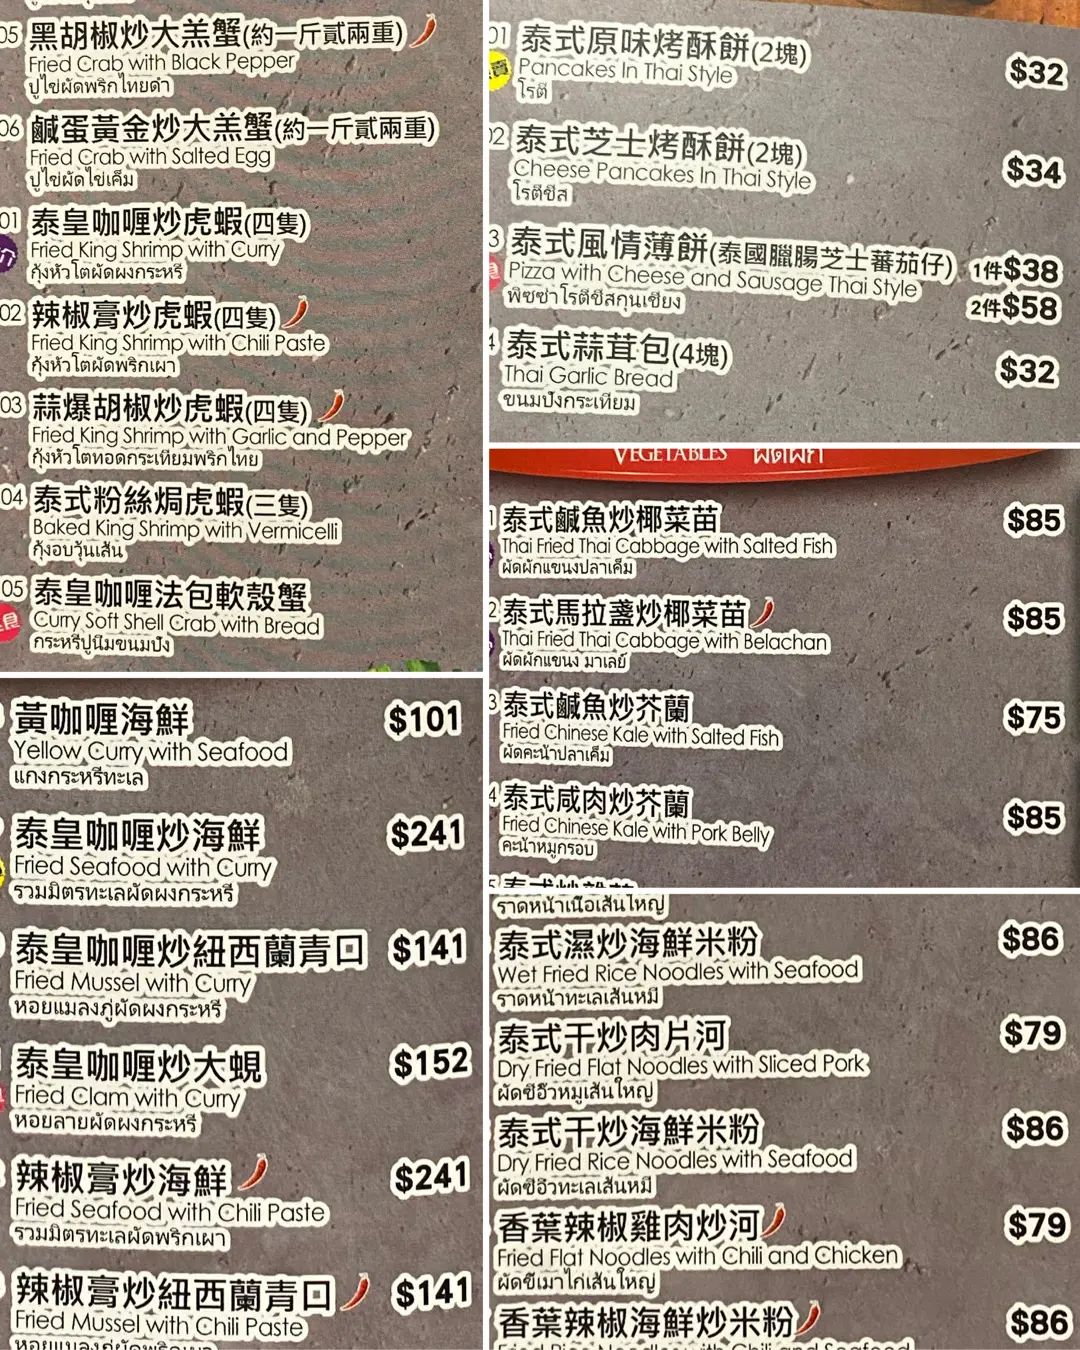 05 黑胡椒炒大羔蟹(約一斤貳兩重)
Fried Crab with Black Pepper
ปูไข่ผัดพริกไทยดำ
06 鹹蛋黃金炒大羔蟹(約一斤貳兩重)
Fried Crab with Salted Egg
ปูไข่ผัดไข่เค็ม
01 泰皇咖喱炒虎蝦(四隻)
Fried King Shrimp with Curry
กุ้งหัวโตผัดผงกระหรี่
02 辣椒膏炒虎蝦(四隻)
Fried King Shrimp with Chili Paste
กุ้งหัวโตผัดพริกเผา
03 蒜爆胡椒炒虎蝦(四隻)
Fried King Shrimp with Garlic and Pepper
กุ้งหัวโตทอดกระเทียมพริกไทย
04 泰式粉絲焗虎蝦(三隻)
Baked King Shrimp with Vermicelli
กุ้งอบวุ้นเส้น
05 泰皇咖喱法包軟殼蟹
Curry Soft Shell Crab with Bread
กระหรี่ปูนิ่มขนมปัง
黃咖喱海鮮 $101
Yellow Curry with Seafood
แกงกระหรี่ทะเล
泰皇咖喱炒海鮮 $241
Fried Seafood with Curry
รวมมิตรทะเลผัดผงกระหรี่
泰皇咖喱炒紐西蘭青口 $141
Fried Mussel with Curry
หอยแมลงภู่ผัดผงกระหรี่
泰皇咖喱炒大蜆 $152
Fried Clam with Curry
หอยลายผัดผงกระหรี่
辣椒膏炒海鮮 $241
Fried Seafood with Chili Paste
รวมมิตรทะเลผัดพริกเผา
辣椒膏炒紐西蘭青口 $141
Fried Mussel with Chili Paste
01 泰式原味烤酥餅(2塊) $32
Pancakes In Thai Style
โรตี
02 泰式芝士烤酥餅(2塊) $34
Cheese Pancakes In Thai Style
โรตีชีส
3 泰式風情薄餅(泰國臘腸芝士蕃茄仔) 1件$38
Pizza with Cheese and Sausage Thai Style 2件$58
พิซซ่าโรตีชีสกุนเชียง
4 泰式蒜茸包(4塊) $32
Thai Garlic Bread
ขนมปังกระเทียม
VEGETABLES ผัดผัก
泰式鹹魚炒椰菜苗 $85
Thai Fried Thai Cabbage with Salted Fish
ผัดผักแขนงปลาเค็ม
2 泰式馬拉盞炒椰菜苗 $85
Thai Fried Thai Cabbage with Belachan
ผัดผักแขนง มาเลย์
3 泰式鹹魚炒芥蘭 $75
Fried Chinese Kale with Salted Fish
ผัดคะน้าปลาเค็ม
4 泰式咸肉炒芥蘭 $85
Fried Chinese Kale with Pork Belly
คะน้าหมูกรอบ
ราดหน้าเนื้อเส้นใหญ่
泰式濕炒海鮮米粉 $86
Wet Fried Rice Noodles with Seafood
ราดหน้าทะเลเส้นหมี่
泰式干炒肉片河 $79
Dry Fried Flat Noodles with Sliced Pork
ผัดซีอิ๊วหมูเส้นใหญ่
泰式干炒海鮮米粉 $86
Dry Fried Rice Noodles with Seafood
ผัดซีอิ๊วทะเลเส้นหมี่
香葉辣椒雞肉炒河 $79
Fried Flat Noodles with Chili and Chicken
ผัดขี้เมาไก่เส้นใหญ่
香葉辣椒海鮮炒米粉 $86